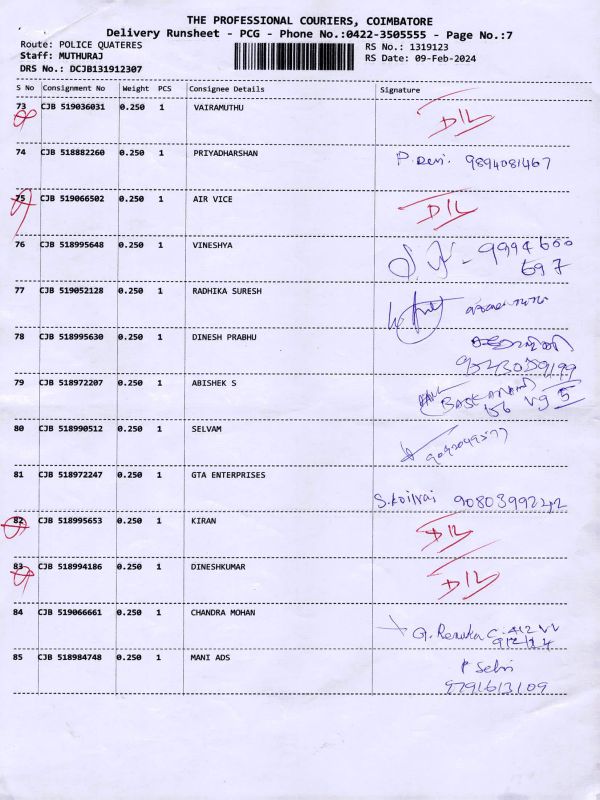 THE PROFESSIONAL COURIERS, COIMBATORE
Delivery Runsheet - PCG - Phone No.:0422-3505555 - Page No.:7
Route: POLICE QUATERES RS No.: 1319123
Staff: MUTHURAJ RS Date: 09-Feb-2024
DRS No.: DCJB131912307
S No Consignment No Weight PCS Consignee Details Signature
73 CJB 519036031 0.250 1 VAIRAMUTHU D/L
74 CJB 518882260 0.250 1 PRIYADHARSHAN P. Devi. 9894081467
75 CJB 519066502 0.250 1 AIR VICE D/L
76 CJB 518995648 0.250 1 VINESHYA 9994600
697
77 CJB 519052128 0.250 1 RADHIKA SURESH
78 CJB 518995630 0.250 1 DINESH PRABHU
79 CJB 518972207 0.250 1 ABISHEK S
80 CJB 518990512 0.250 1 SELVAM
81 CJB 518972247 0.250 1 GTA ENTERPRISES
S. Koilvai 9080399242
82 CJB 518995653 0.250 1 KIRAN D/L
83 CJB 518994186 0.250 1 DINESHKUMAR D/L
84 CJB 519066661 0.250 1 CHANDRA MOHAN
G. Renuka C.
85 CJB 518984748 0.250 1 MANI ADS P Selvi
9791613109